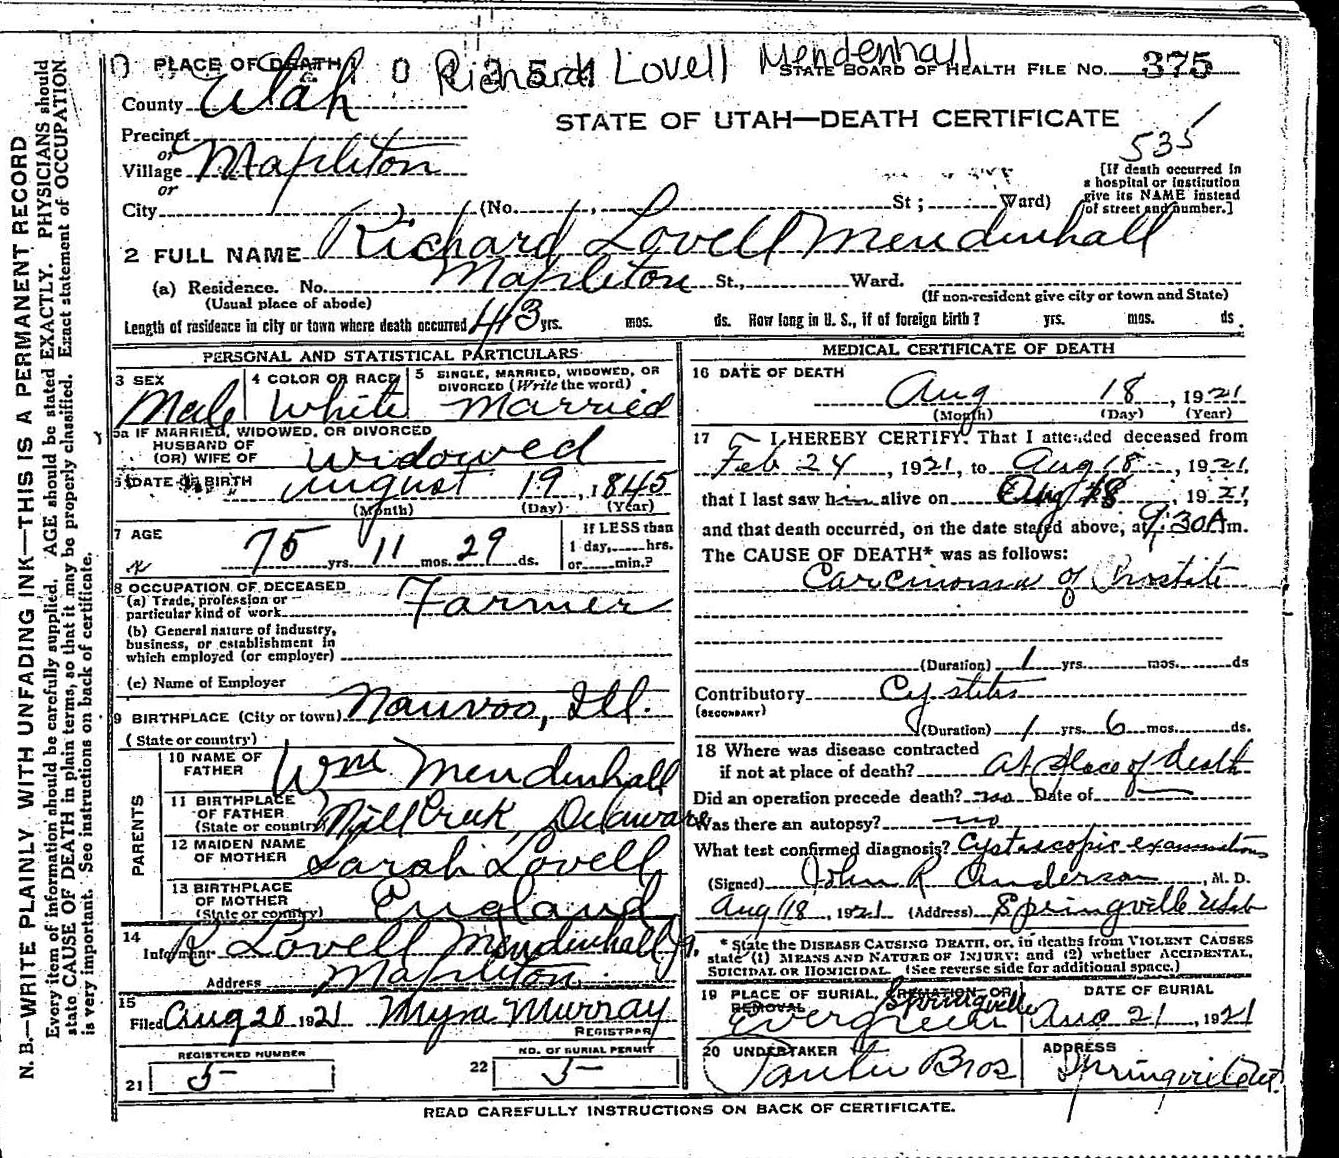 PLACE OF DEATH
Richard Lovell Mendenhall
STATE BOARD OF HEALTH FILE NO. 375
County Utah
STATE OF UTAH—DEATH CERTIFICATE
535
Precinct
or
Village Mapleton
or
City (No. , St ; Ward)
[If death occurred in
a hospital or institution
give its NAME instead
of street and number.]
2 FULL NAME Richard Lovell Mendenhall
(a) Residence. No. Mapleton St., Ward.
(Usual place of abode) (If non-resident give city or town and State)
Length of residence in city or town where death occurred 43 yrs. mos. ds. How long in U. S., if of foreign birth? yrs. mos. ds.
PERSONAL AND STATISTICAL PARTICULARS
3 SEX Male
4 COLOR OR RACE White
5 SINGLE, MARRIED, WIDOWED, OR
DIVORCED (Write the word)
Married
5a IF MARRIED, WIDOWED, OR DIVORCED
HUSBAND OF
(OR) WIFE OF Widowed
6 DATE OF BIRTH August 19, 1845
(Month) (Day) (Year)
7 AGE
75 yrs. 11 mos. 29 ds.
If LESS than
1 day, hrs.
or min.?
8 OCCUPATION OF DECEASED
(a) Trade, profession or
particular kind of work Farmer
(b) General nature of industry,
business, or establishment in
which employed (or employer)
(c) Name of Employer
9 BIRTHPLACE (City or town) Nauvoo, Ill.
(State or country)
PARENTS
10 NAME OF
FATHER Wm Mendenhall
11 BIRTHPLACE
OF FATHER
(State or country) Mill Creek, Delaware
12 MAIDEN NAME
OF MOTHER Sarah Lovell
13 BIRTHPLACE
OF MOTHER
(State or country) England
14
Informant R Lovell Mendenhall Jr.
Address Mapleton
15
Filed Aug 20 1921 Myra Murray
REGISTRAR
REGISTERED NUMBER
21 5
NO. OF BURIAL PERMIT
22 5
MEDICAL CERTIFICATE OF DEATH
16 DATE OF DEATH
Aug 18, 1921
(Month) (Day) (Year)
17 I HEREBY CERTIFY, That I attended deceased from
Feb 24, 1921, to Aug 18, 1921,
that I last saw him alive on Aug 18, 1921,
and that death occurred, on the date stated above, at 9:30 A m.
The CAUSE OF DEATH* was as follows:
Carcinoma of Prostite
(Duration) 1 yrs. mos. ds
Contributory Cystitis
(SECONDARY)
(Duration) 1 yrs. 6 mos. ds.
18 Where was disease contracted
if not at place of death? at place of death
Did an operation precede death? no Date of
Was there an autopsy? no
What test confirmed diagnosis? Cystoscopic examinations
(Signed) John R Anderson, M. D.
Aug 18, 1921 (Address) Springville Utah
* State the DISEASE CAUSING DEATH, or, in deaths from VIOLENT CAUSES
state (1) MEANS AND NATURE OF INJURY; and (2) whether ACCIDENTAL,
SUICIDAL OR HOMICIDAL. (See reverse side for additional space.)
19 PLACE OF BURIAL, CREMATION OR
REMOVAL
Springville
Evergreen
DATE OF BURIAL
Aug 21, 1921
20 UNDERTAKER
Bros
ADDRESS
READ CAREFULLY INSTRUCTIONS ON BACK OF CERTIFICATE.
N. B.—WRITE PLAINLY, WITH UNFADING INK—THIS IS A PERMANENT RECORD
Every item of information should be carefully supplied. AGE should be stated EXACTLY. PHYSICIANS should
state CAUSE OF DEATH in plain terms, so that it may be properly classified. Exact statement of OCCUPATION
is very important. See instructions on back of certificate.